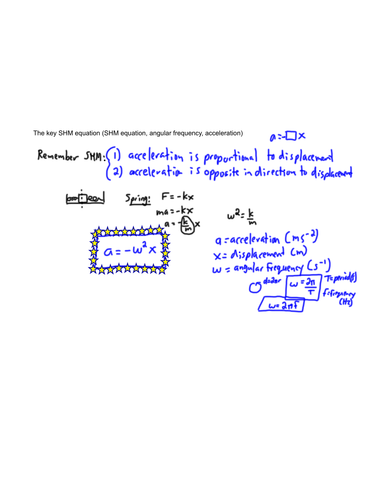 The key SHM equation (SHM equation, angular frequency, acceleration)
a=-□x
Remember SHM: 1) acceleration is proportional to displacement
2) acceleration is opposite in direction to displacement
Spring: F=-kx
ma=-kx
a=-k/m x
ω²=k/m
a=-ω²x
a=acceleration (ms⁻²)
x=displacement (m)
ω=angular frequency (s⁻¹)
ω=2π/T
T=period(s)
f=frequency (Hz)
ω=2πf